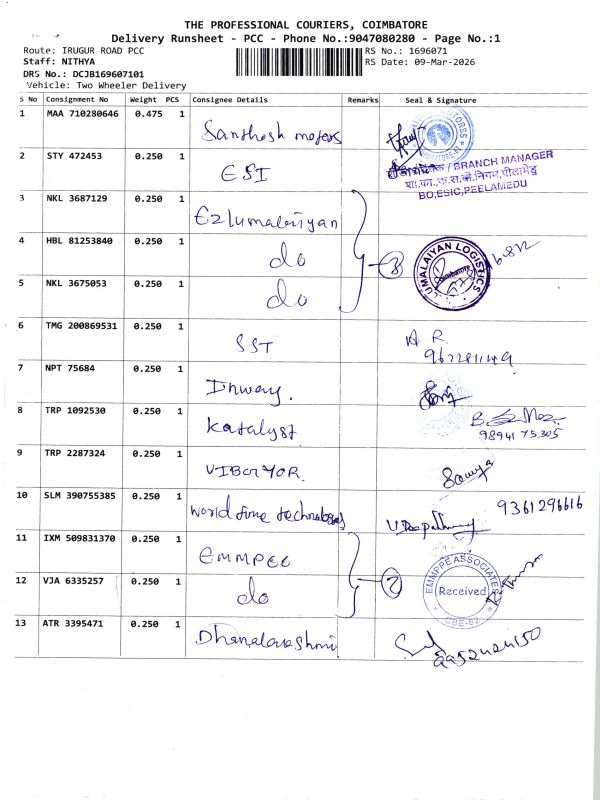 THE PROFESSIONAL COURIERS, COIMBATORE
Delivery Runsheet - PCC - Phone No.:9047080280 - Page No.:1
Route: IRUGUR ROAD PCC
RS No.: 1696071
Staff: NITHYA
RS Date: 09-Mar-2026
DRS No.: DCJB169607101
Vehicle: Two Wheeler Delivery
S No Consignment No Weight PCS Consignee Details Remarks Seal & Signature
1 MAA 710280646 0.475 1 Santhosh motors
2 STY 472453 0.250 1 ESI
BRANCH MANAGER
BO,ESIC,PEELAMEDU
3 NKL 3687129 0.250 1 Ezlumalaiyan
4 HBL 81253840 0.250 1 do 3
LUMALAIYAN LOGISTICS
Coimbatore
5 NKL 3675053 0.250 1 do
6 TMG 200869531 0.250 1 SST A R.
7 NPT 75684 0.250 1 Inway.
8 TRP 1092530 0.250 1 Katalyst
98941 75305
9 TRP 2287324 0.250 1 VIBGYOR. Sowmya
10 SLM 390755385 0.250 1 World time technologies 9361296616
11 IXM 509831370 0.250 1 EMMPEE
EMMPPE ASSOCIATES
Received
CBE-62
12 VJA 6335257 0.250 1 do 2
13 ATR 3395471 0.250 1 Dhanalakshmi